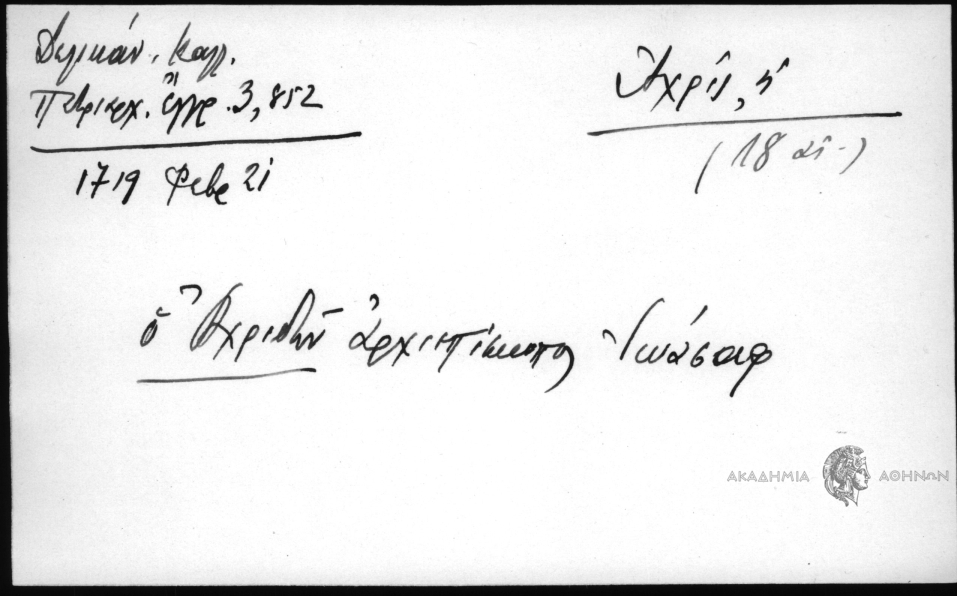 Δελικάν. Καλλ.
Πατριαρχ. ἔγγρ. 3, 852
1719 Φεβρ 21
Ἀχρίς, ἡ
(18 αἰ.)
ὁ Ἀχριδῶν ἀρχιεπίσκοπος Ἰωάσαφ
ΑΚΑΔΗΜΙΑ ΑΘΗΝΩΝ